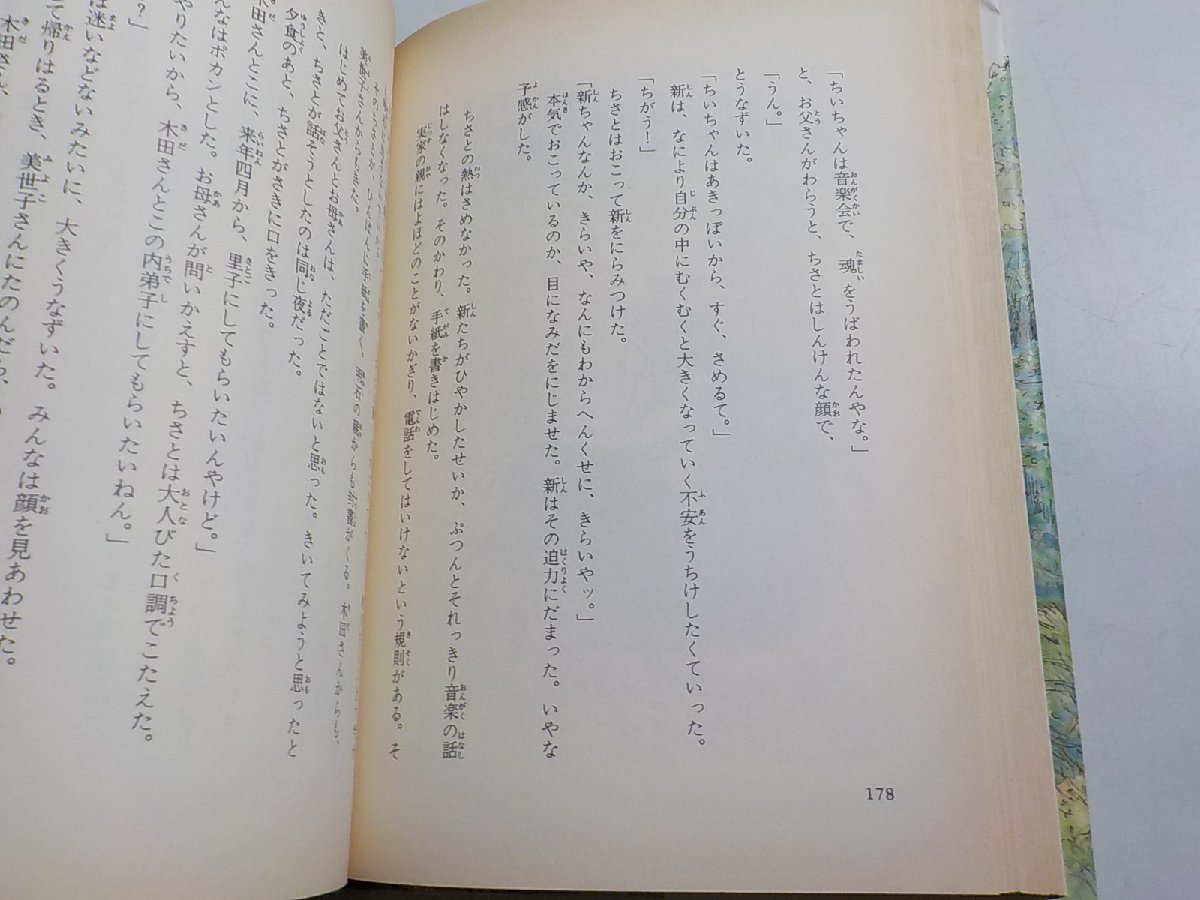 「ちいちゃんは音楽会で、魂をうばわれたんやな。」
と、お父さんがわらうと、ちさとはしんけんな顔で、
「うん。」
とうなずいた。
「ちいちゃんはあきっぽいから、すぐ、さめるて。」
新は、なにより自分の中にむくむくと大きくなっていく不安をうちけしたくていった。
「ちがう！」
ちさとはおこって新をにらみつけた。
「新ちゃんなんか、きらいや、なんにもわからへんくせに、きらいやッ。」
本気でおこっているのか、目になみだをにじませた。新はその迫力にだまった。いやな
予感がした。
ちさとの熱はさめなかった。新たちがひやかしたせいか、ぷつんとそれっきり音楽の話
はしなくなった。そのかわり、手紙を書きはじめた。
実家の親にはよほどのことがないかぎり、電話をしてはいけないという規則がある。そ
178
はじめてお父さんとお母さんは、ただごとではないと思った。きいてみようと思ったと
きと、ちさとが話そうとしたのは同じ夜だった。
夕食のあと、ちさとがさきに口をきった。
木田さんとこに、来年四月から、里子にしてもらいたいんやけど。」
んなはポカンとした。お母さんが問いかえすと、ちさとは大人びた口調でこたえた。
やりたいから、木田さんとこの内弟子にしてもらいたいねん。」
？」
は迷いなどないみたいに、大きくうなずいた。みんなは顔を見あわせた。
て帰りはるとき、美世子さんにたのんだら、
木田さん、